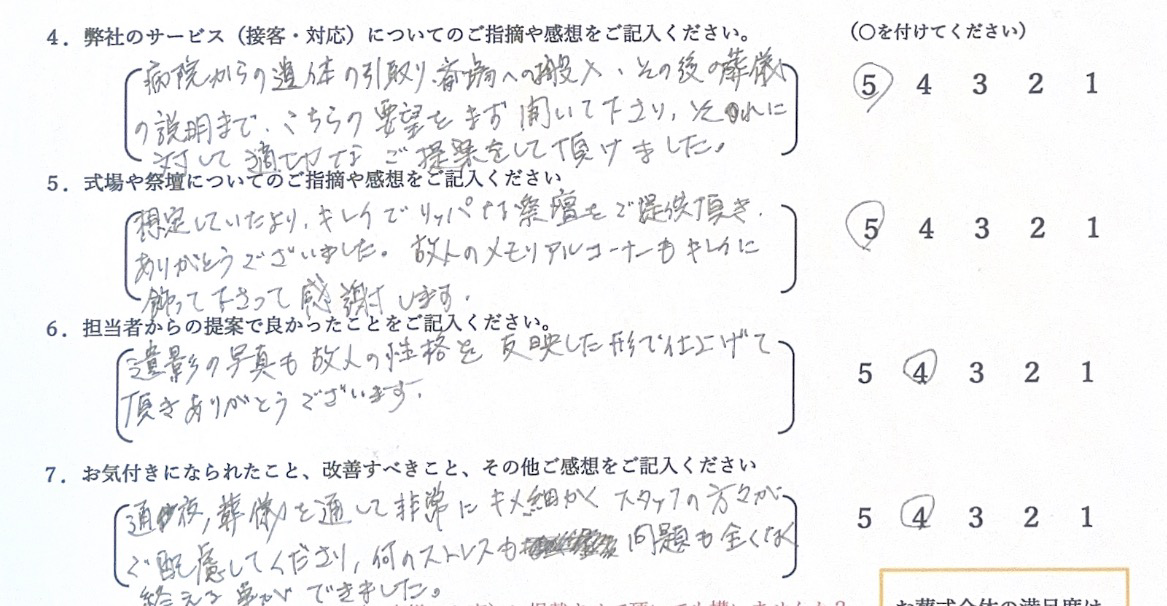 4. 弊社のサービス（接客・対応）についてのご指摘や感想をご記入ください。 （○を付けてください）
病院からの遺体の引取り、斎場への搬入、その後の葬儀 5 4 3 2 1
の説明まで、こちらの要望をまず聞いて下さり、それに
対して適切なご提案をして頂けました。
5. 式場や祭壇についてのご指摘や感想をご記入ください
想定していたより、キレイでリッパな祭壇をご提供頂き、 5 4 3 2 1
ありがとうございました。故人のメモリアルコーナーもキレイに
飾って下さって感謝します。
6. 担当者からの提案で良かったことをご記入ください。
遺影の写真も故人の性格を反映した形で仕上げて 5 4 3 2 1
頂きありがとうございます。
7. お気付きになられたこと、改善すべきこと、その他ご感想をご記入ください
通夜,葬儀を通して非常にキメ細かくスタッフの方々が 5 4 3 2 1
ご配慮してくださり,何のストレスも問題も全くなく
終える事ができました。
お葬式全体の満足度は